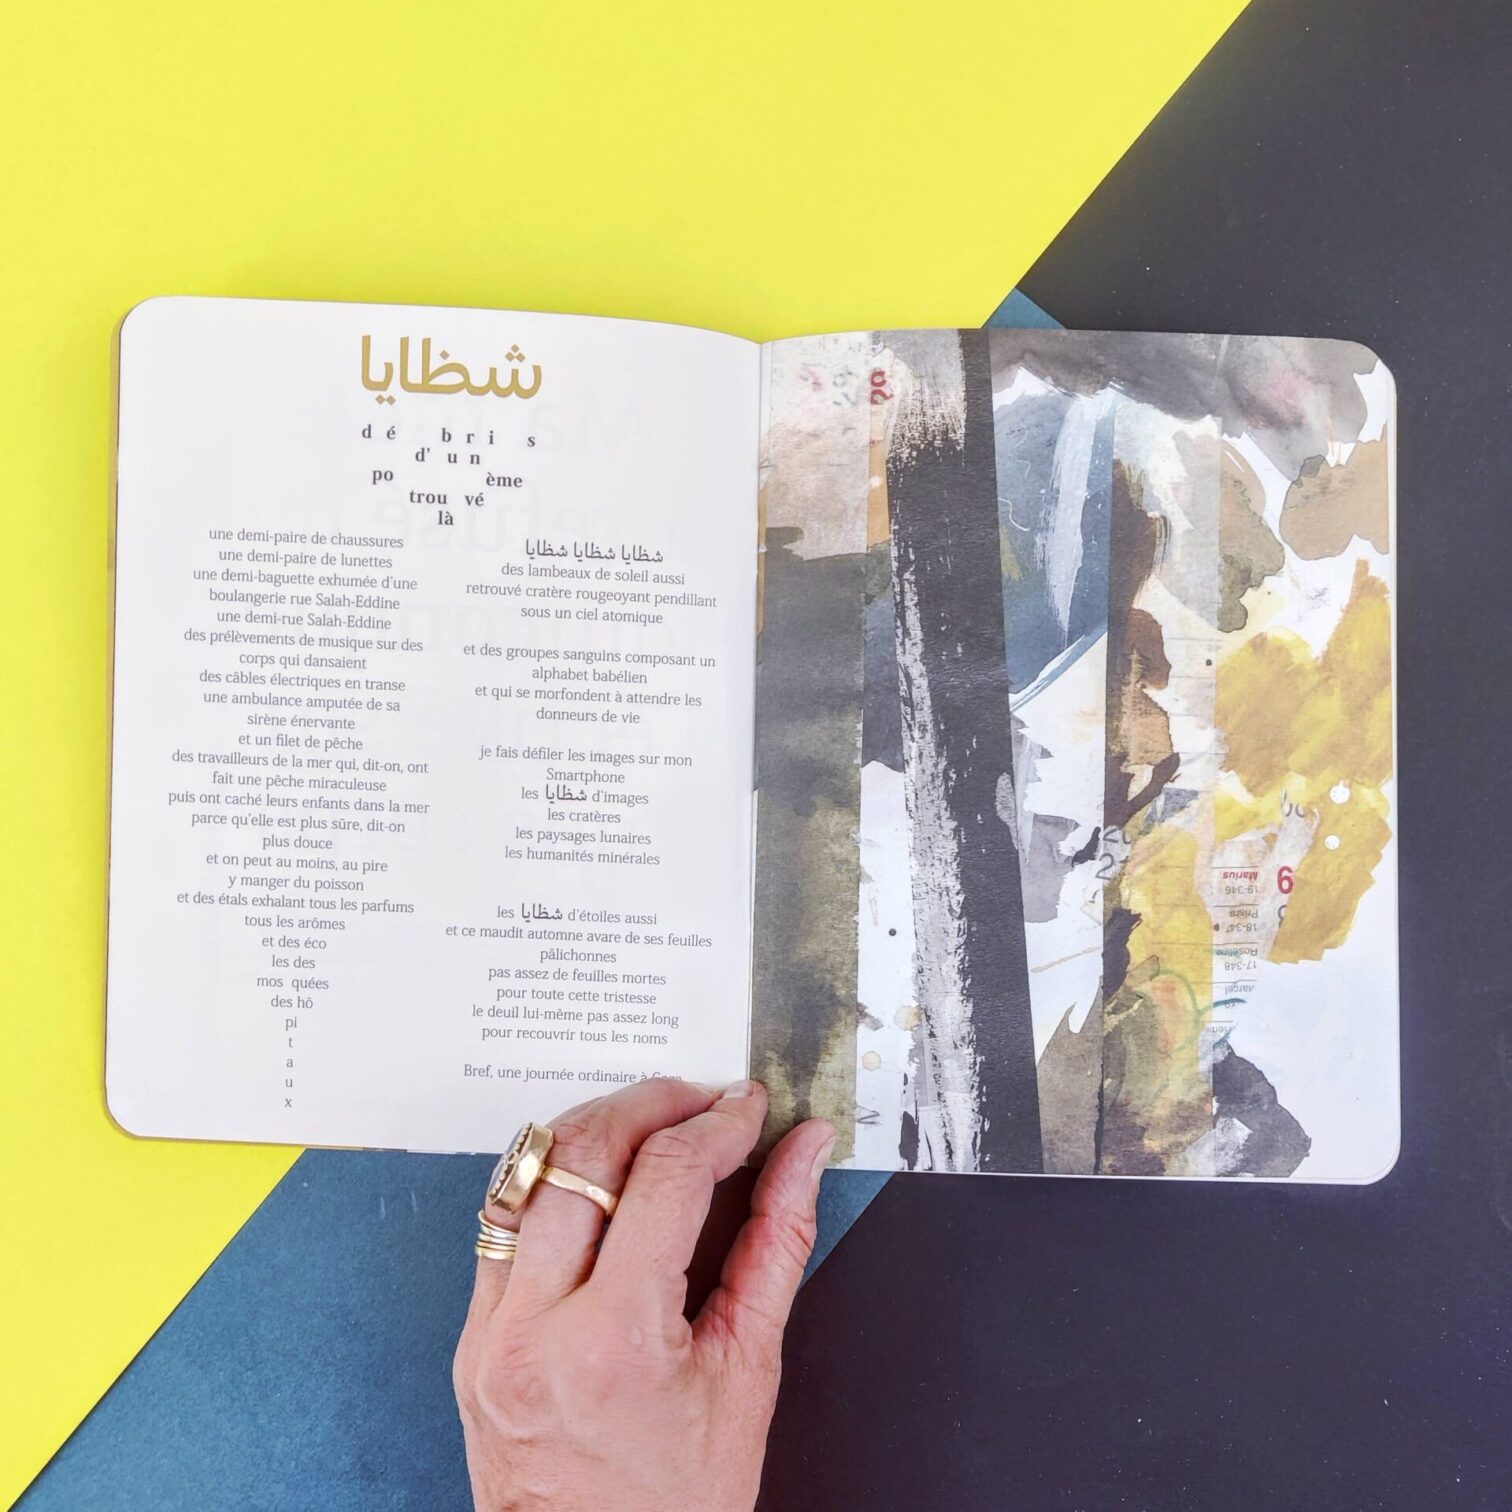 شظايا
d é b r i s
d' u n
po ème
trou vé
là
une demi-paire de chaussures
une demi-paire de lunettes
une demi-baguette exhumée d'une
boulangerie rue Salah-Eddine
une demi-rue Salah-Eddine
des prélèvements de musique sur des
corps qui dansaient
des câbles électriques en transe
une ambulance amputée de sa
sirène énervante
et un filet de pêche
des travailleurs de la mer qui, dit-on, ont
fait une pêche miraculeuse
puis ont caché leurs enfants dans la mer
parce qu'elle est plus sûre, dit-on
plus douce
et on peut au moins, au pire
y manger du poisson
et des étals exhalant tous les parfums
tous les arômes
et des éco
les des
mos quées
des hô
pi
t
a
u
x
شظايا شظايا شظايا
des lambeaux de soleil aussi
retrouvé cratère rougeoyant pendillant
sous un ciel atomique
et des groupes sanguins composant un
alphabet babélien
et qui se morfondent à attendre les
donneurs de vie
je fais défiler les images sur mon
Smartphone
les شظايا d'images
les cratères
les paysages lunaires
les humanités minérales
les شظايا d'étoiles aussi
et ce maudit automne avare de ses feuilles
pâlichonnes
pas assez de feuilles mortes
pour toute cette tristesse
le deuil lui-même pas assez long
pour recouvrir tous les noms
Bref, une journée ordinaire à
9
Marius
19-346
18-347
Roseline
17-348